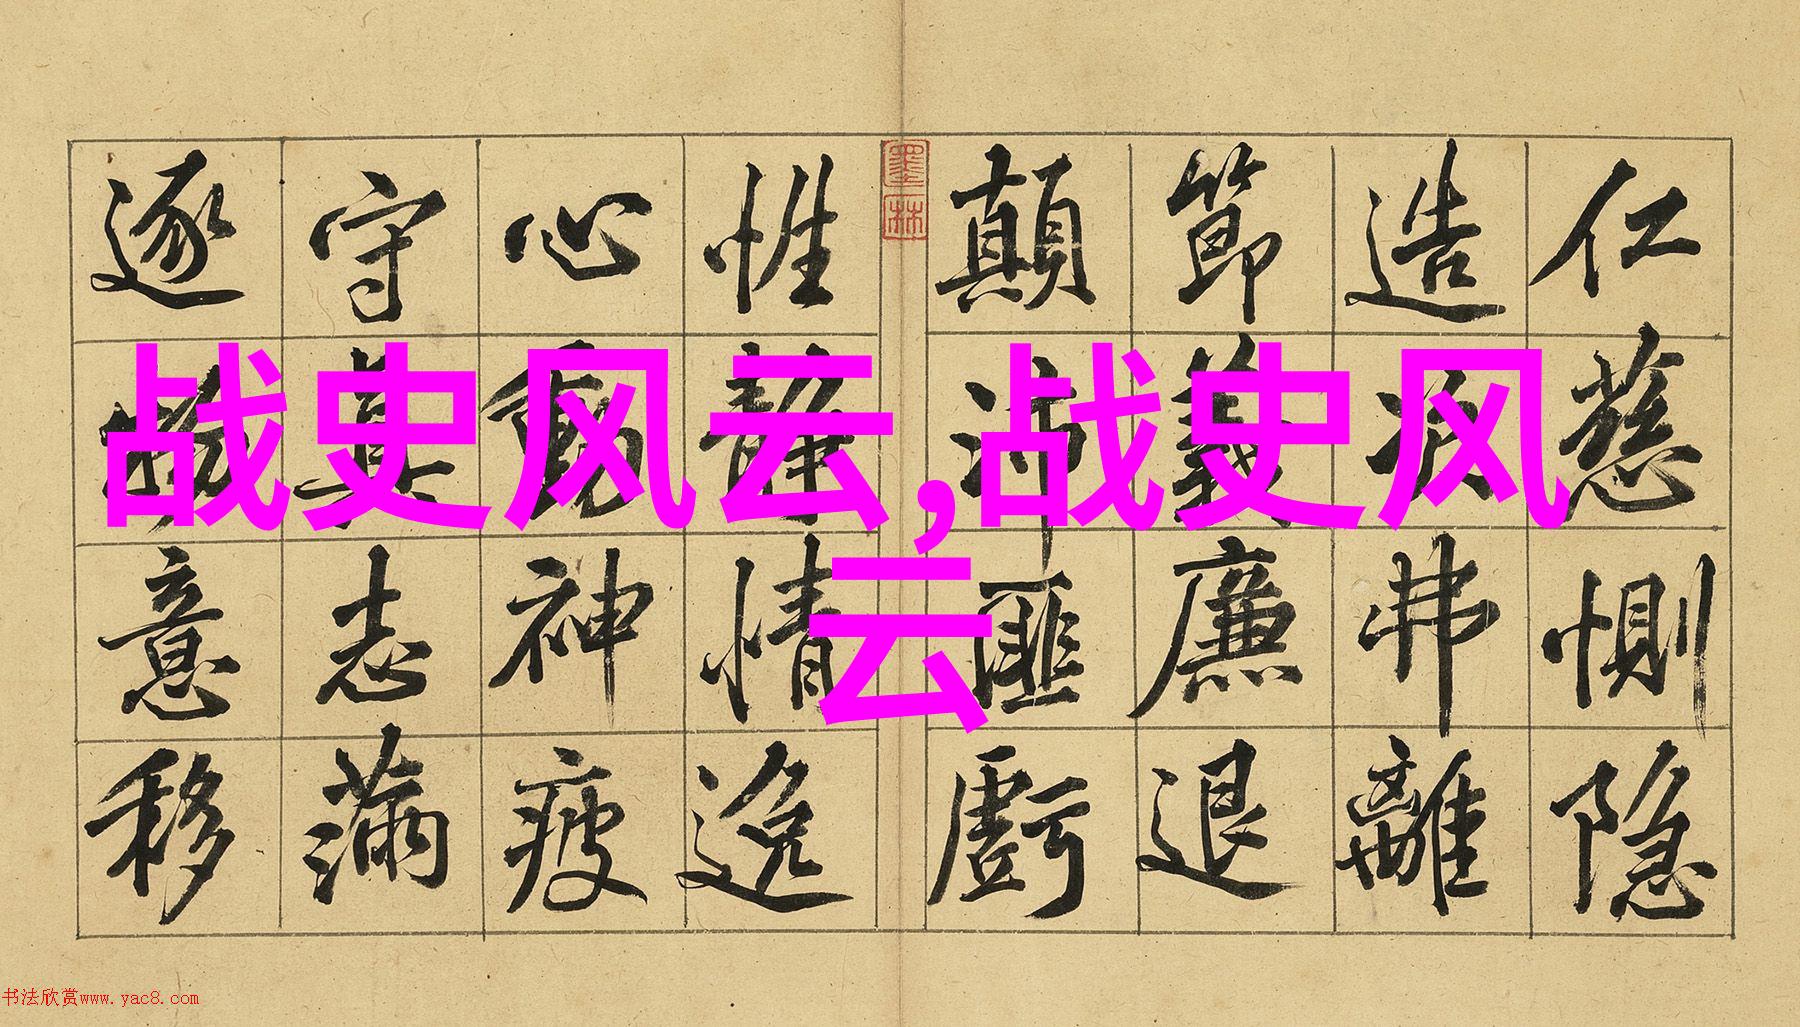 仁慈惻隐
造次弗離
節義廉退
顛沛匪虧
性静情逸
心動神疲
守真志滿
逐物意移
墨林
战史风云,战史风
云
书法欣赏www.yac8.com